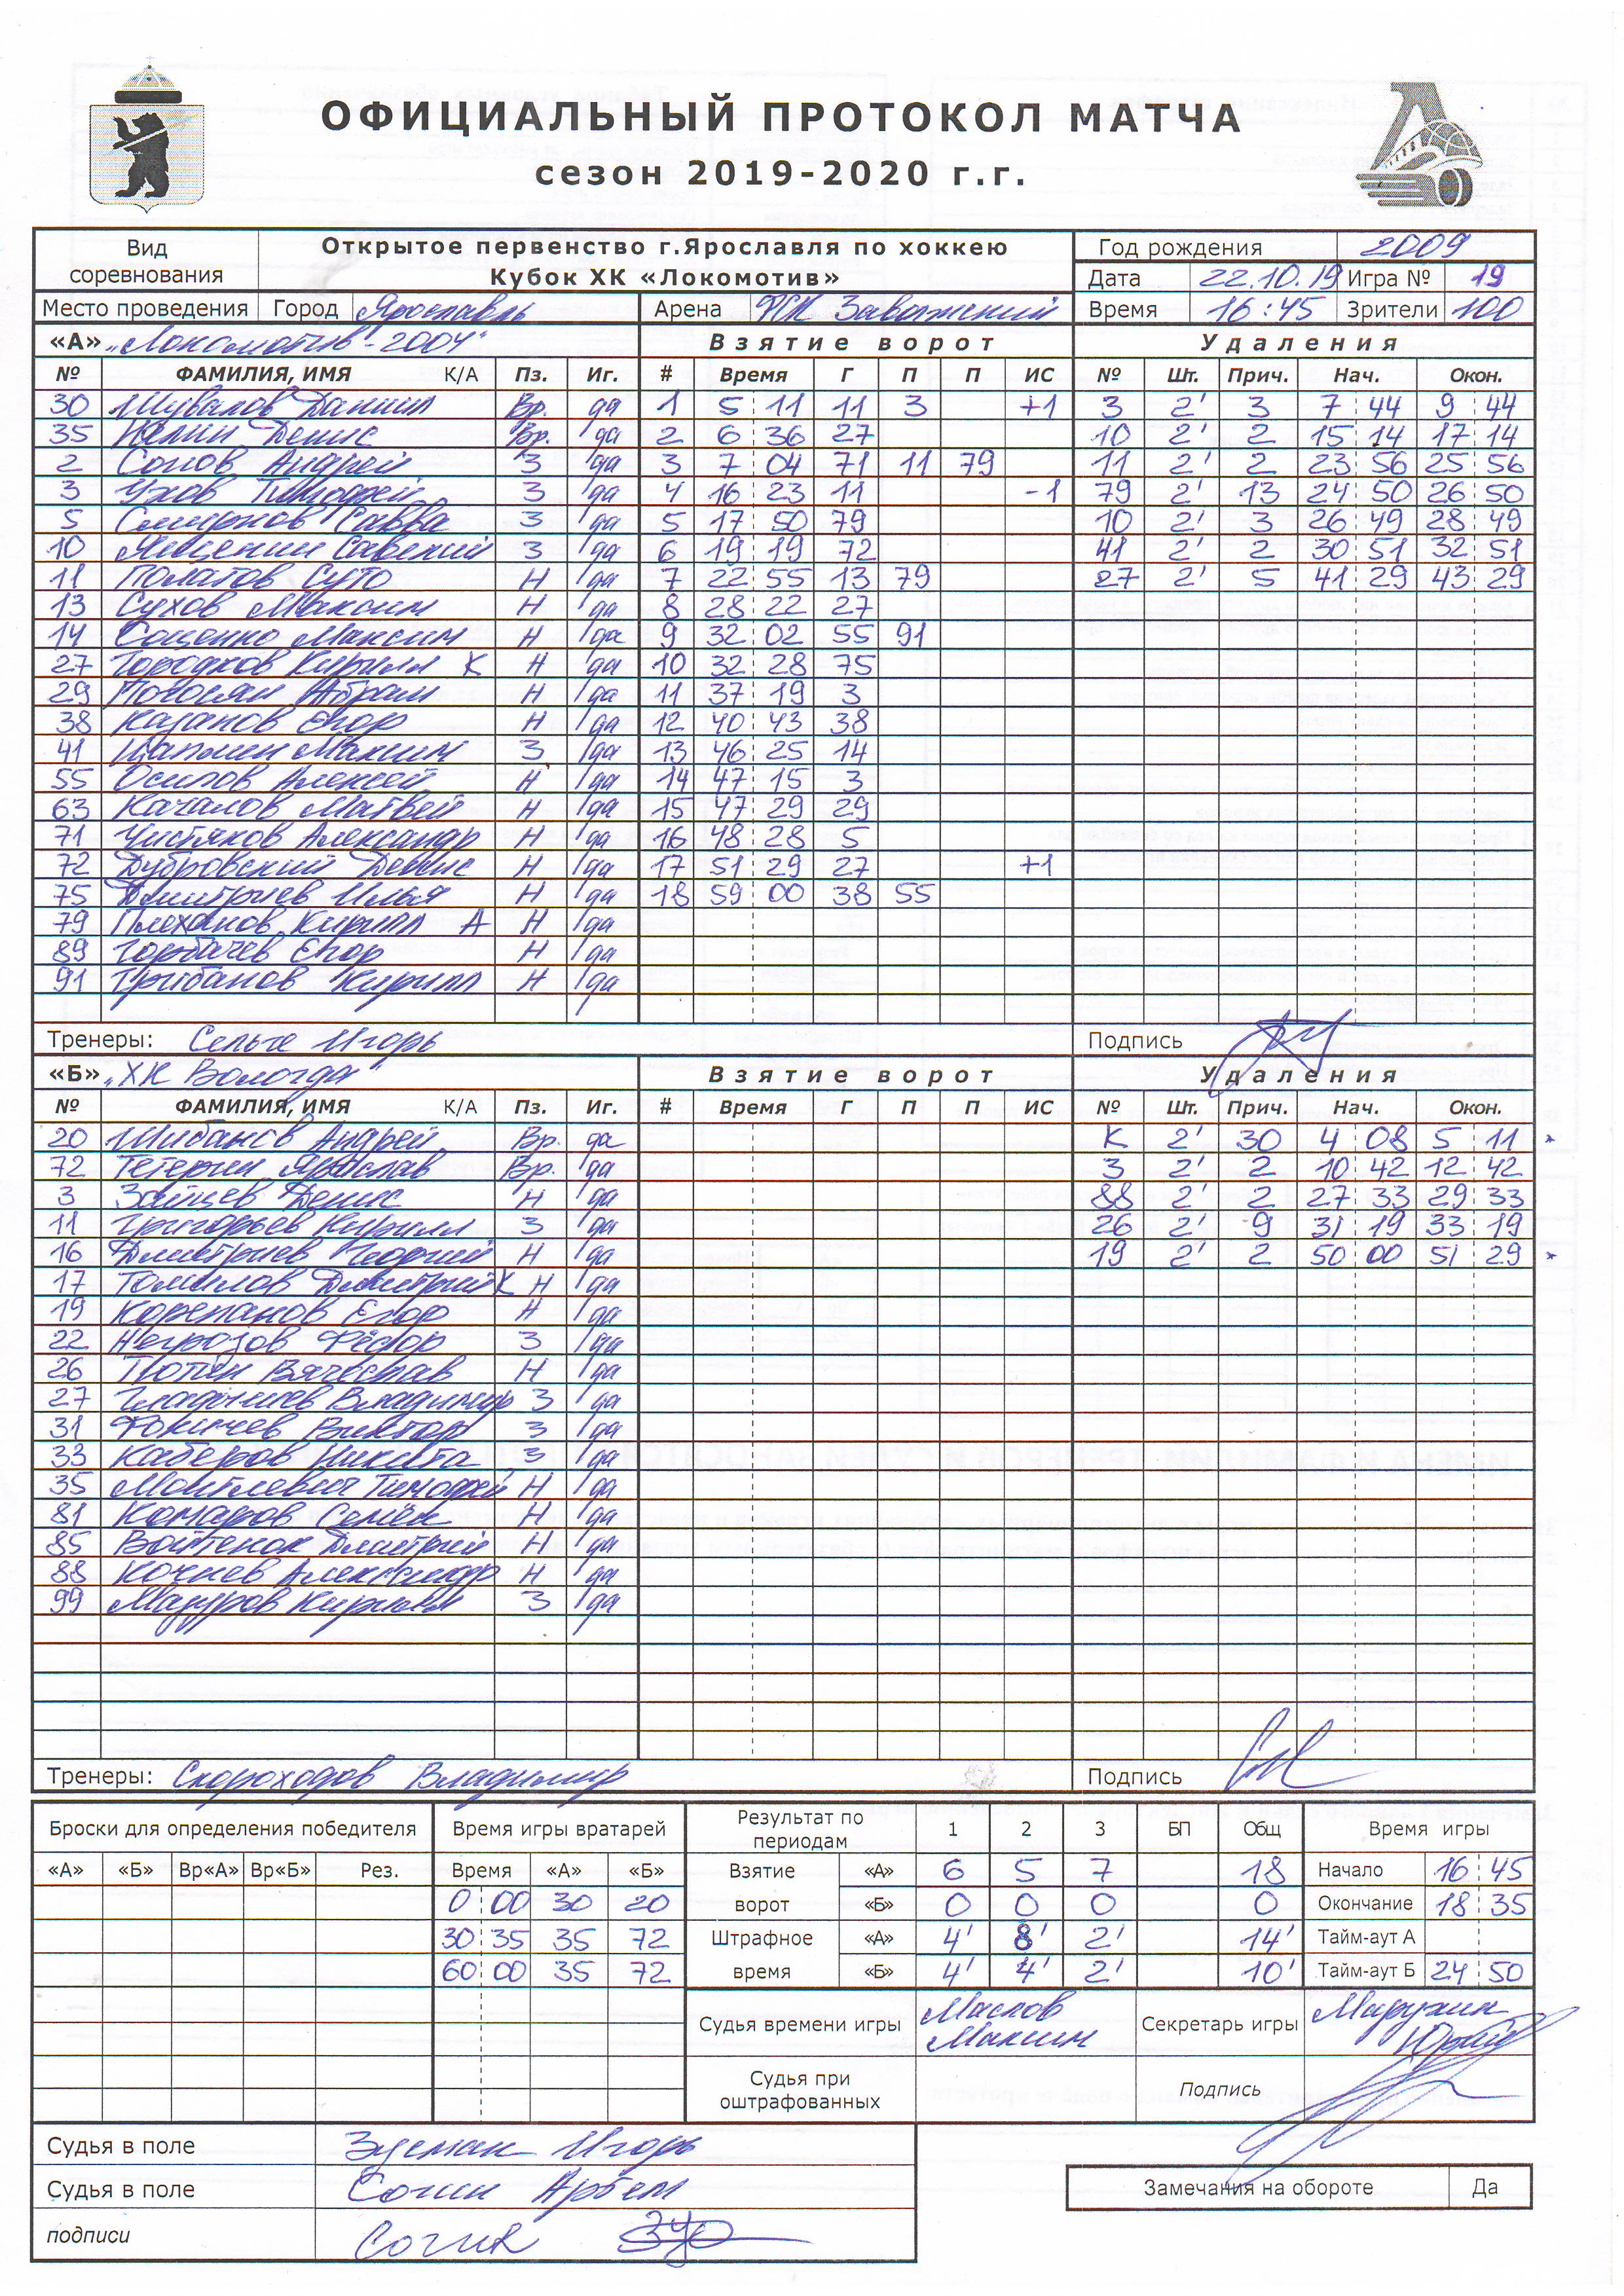 ОФИЦИАЛЬНЫЙ ПРОТОКОЛ МАТЧА
сезон 2019-2020 г.г.
Вид соревнования Открытое первенство г.Ярославля по хоккею Кубок ХК «Локомотив» Год рождения 2009
Дата 22.10.19 Игра № 19
Место проведения Город Ярославль Арена ФСК Заволжский Время 16:45 Зрители 100
«А» „Локомотив-2004" Взятие ворот Удаления
№ ФАМИЛИЯ, ИМЯ К/А Пз. Иг. # Время Г П П ИС № Шт. Прич. Нач. Окон.
30 Шувалов Даниил Вр. да 1 5 11 11 3 +1 3 2' 3 7 44 9 44
35 Денис Вр. да 2 6 36 27 10 2' 2 15 14 17 14
2 Сонов Андрей З да 3 7 04 71 11 79 11 2' 2 23 56 25 56
3 Ухов Тимофей З да 4 16 23 11 -1 79 2' 13 24 50 26 50
5 Смирнов Савва З да 5 17 50 79 10 2' 3 26 49 28 49
10 Савелий З да 6 19 19 72 41 2' 2 30 51 32 51
11 Полатов Суто Н да 7 22 55 13 79 27 2' 5 41 29 43 29
13 Сухов Максим Н да 8 28 22 27
14 Соценко Максим Н да 9 32 02 55 91
27 Городков Кирилл К Н да 10 32 28 75
29 Погосян Абрам Н да 11 37 19 3
38 Казаков Егор Н да 12 40 43 38
41 Щапкин Максим З да 13 46 25 14
55 Осипов Алексей Н да 14 47 15 3
63 Качалов Матвей Н да 15 47 29 29
71 Чистяков Александр Н да 16 48 28 5
72 Дубровский Денис Н да 17 51 29 27 +1
75 Дмитриев Илья Н да 18 59 00 38 55
79 Плеханов Кирилл А Н да
89 Горбачев Егор Н да
91 Грибанов Кирилл Н да
Тренеры: Игорь Подпись
«Б» „ХК Вологда" Взятие ворот Удаления
№ ФАМИЛИЯ, ИМЯ К/А Пз. Иг. # Время Г П П ИС № Шт. Прич. Нач. Окон.
20 Шибанов Андрей Вр. да К 2' 30 4 08 5 11 *
72 Тетерин Ярослав Вр. да 3 2' 2 10 42 12 42
3 Зайцев Денис Н да 88 2' 2 27 33 29 33
11 Григорьев Кирилл З да 26 2' 9 31 19 33 19
16 Дмитриев Георгий Н да 19 2' 2 50 00 51 29 *
17 Томилов Дмитрий К Н да
19 Корепанов Егор Н да
22 Фёдор З да
26 Попин Вячеслав Н да
27 Владимир З да
31 Фокичев Виктор З да
33 Каберов Никита З да
35 Тимофей Н да
81 Комаров Семён Н да
85 Войтенок Дмитрий Н да
88 Кочнев Александр Н да
99 Мазуров Кирилл З да
Тренеры: Скороходов Владимир Подпись
Броски для определения победителя Время игры вратарей Результат по периодам 1 2 3 БП Общ Время игры
«А» «Б» Вр«А» Вр«Б» Рез. Время «А» «Б» Взятие «А» 6 5 7 18 Начало 16 45
0 00 30 20 ворот «Б» 0 0 0 0 Окончание 18 35
30 35 35 72 Штрафное «А» 4' 8' 2' 14' Тайм-аут А
60 00 35 72 время «Б» 4' 4' 2' 10' Тайм-аут Б 24 50
Судья времени игры Маслов Максим Секретарь игры Марухин Юрий
Судья при оштрафованных Подпись
Судья в поле Зусман Игорь
Судья в поле Сочин Артем
Замечания на обороте Да
подписи